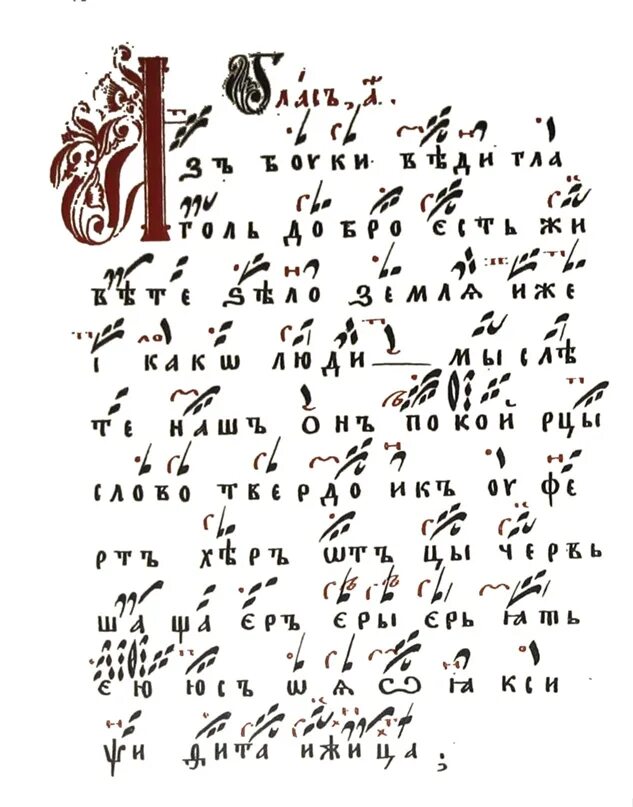 Гласъ, а҃.
Азъ боуки вѣди гла
голь добро єсть жи
вѣте ѕѣло земля иже
і какѡ люди мыслѣ
те нашъ о҆нъ покой рцы
слово твердо икъ оу фе
ртъ хѣръ ѿтъ цы червь
ша ща єръ єры єрь ıать
є ю юсъ ѡ ѧ ѽ ıа кси
ѱи ѳита ижица ;